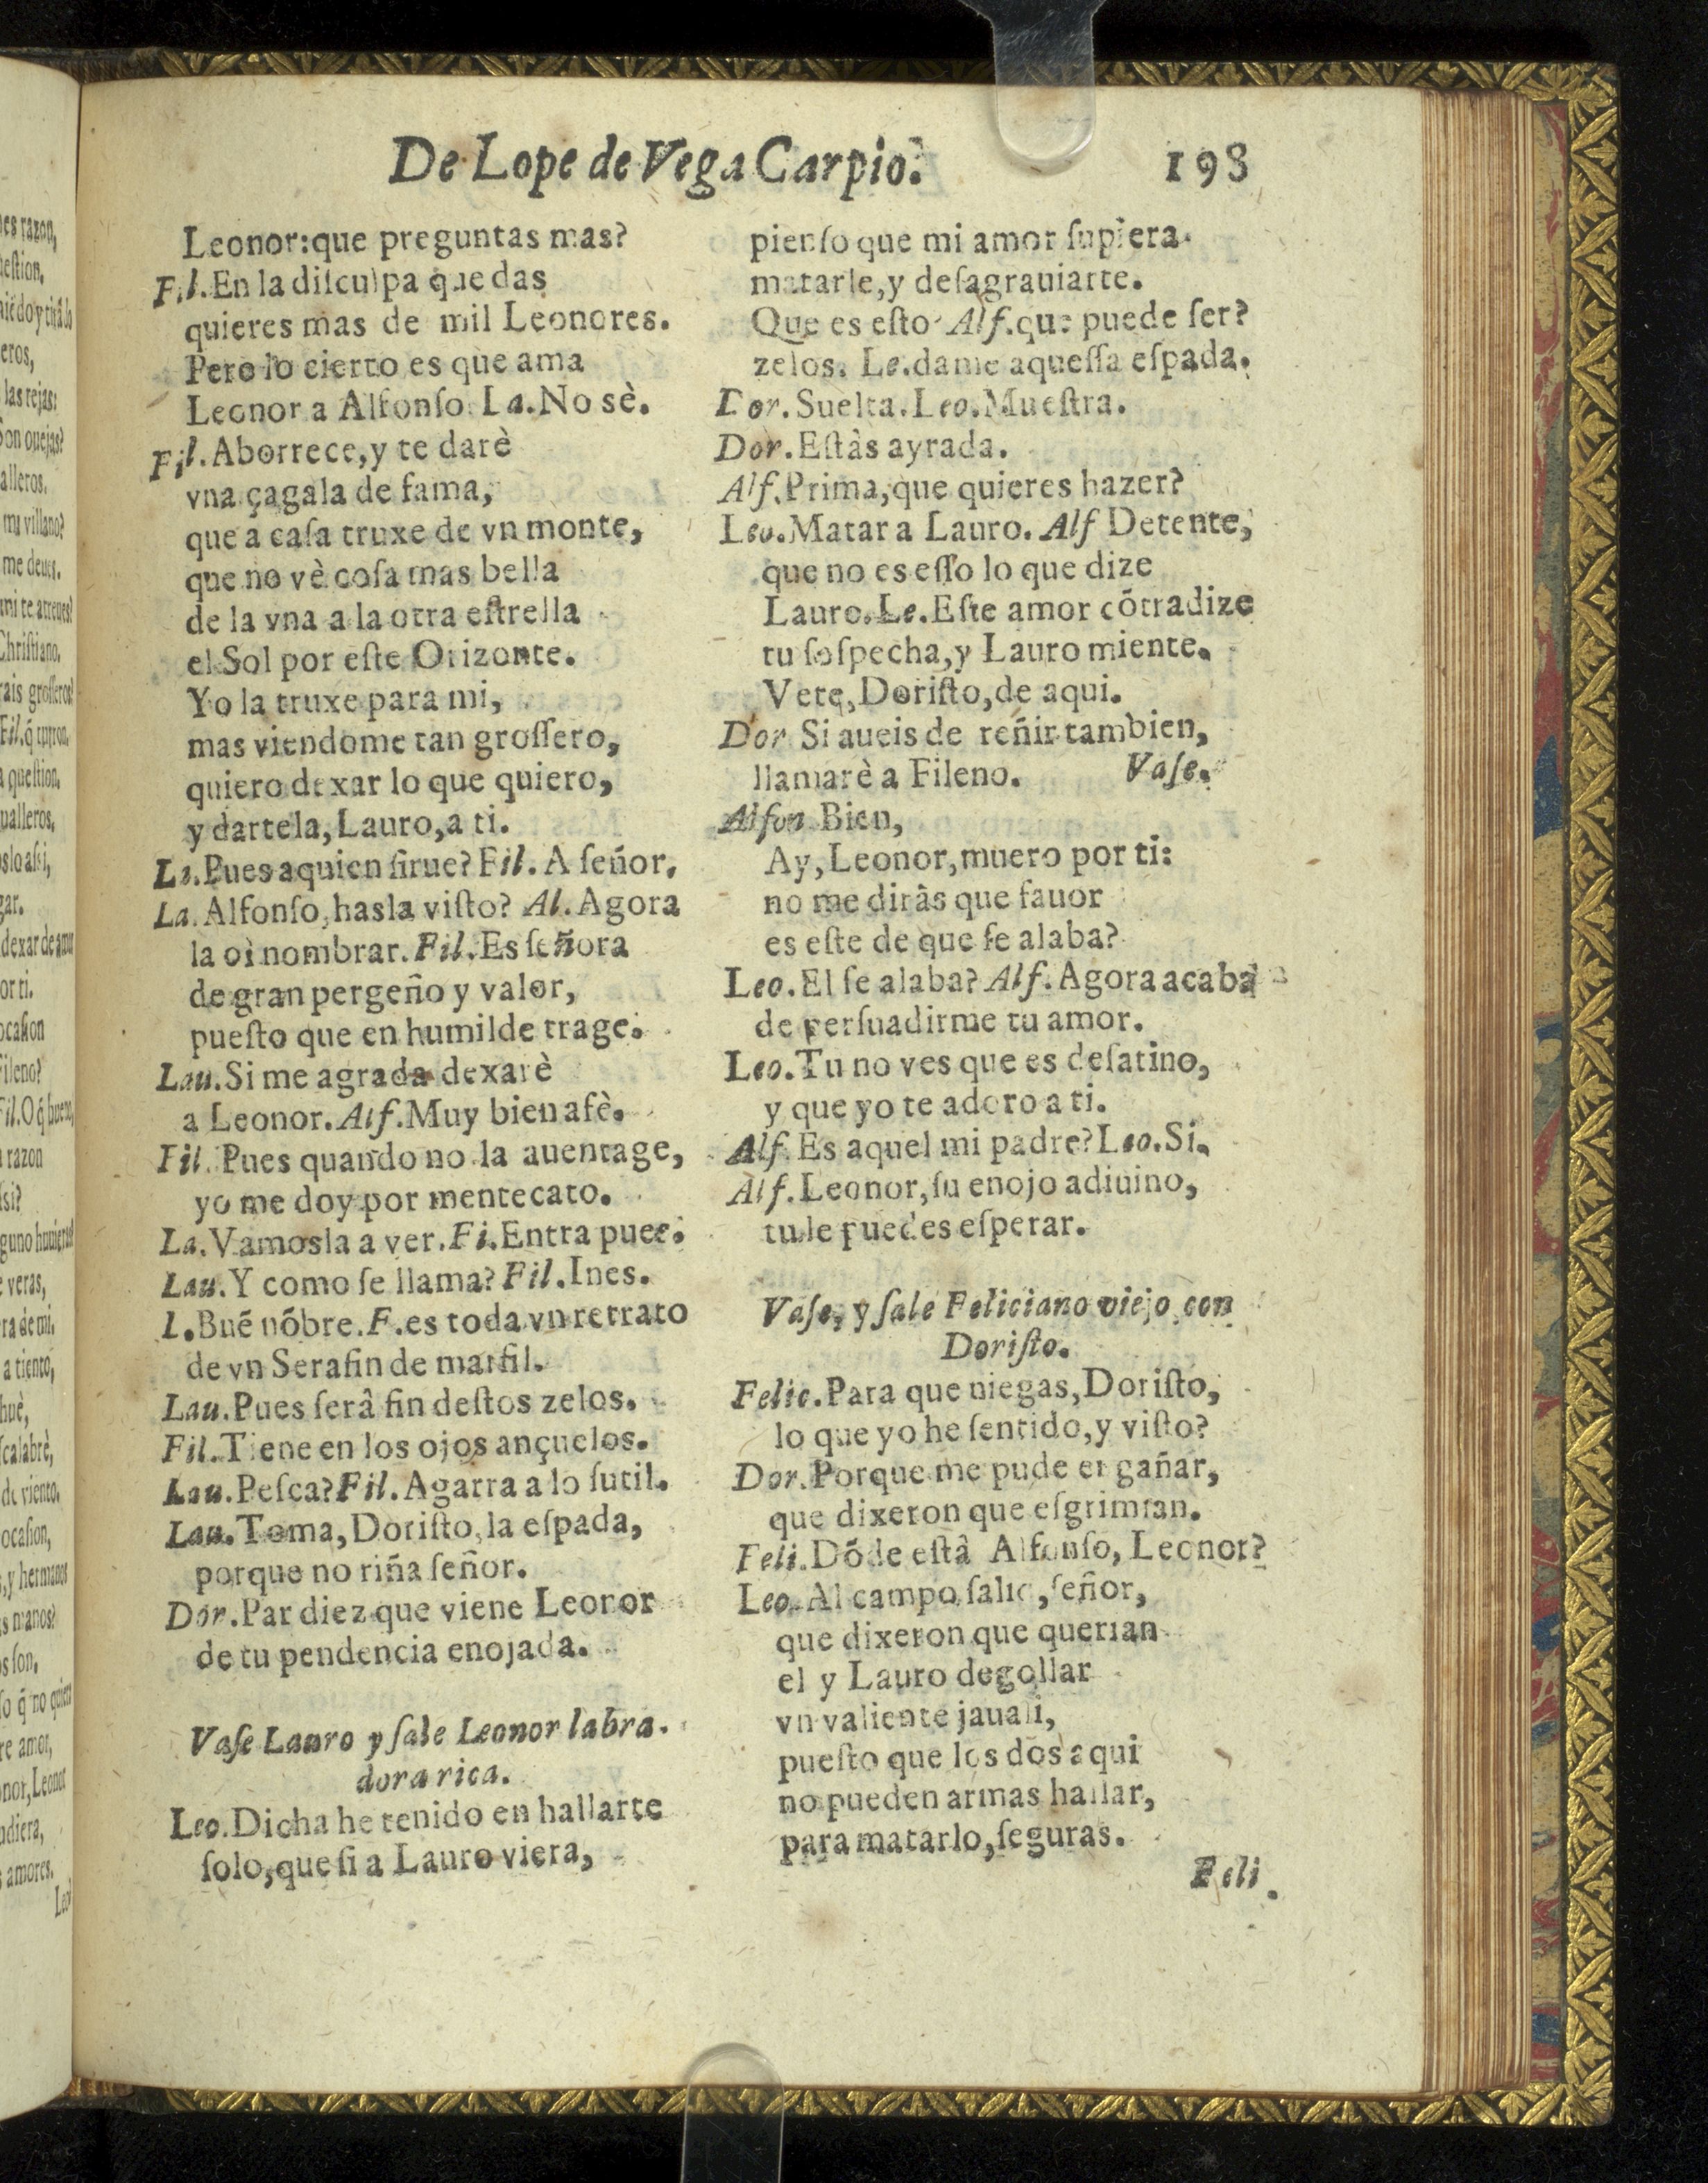 De Lope de Vega Carpio. 198
Leonor: que preguntas mas?
Fil. En la disculpa que das
quieres mas de mil Leonores.
Pero lo cierto es que ama
Leonor a Alfonſo. La. No sè.
Fil. Aborrece, y te darè
vna çagala de fama,
que a caſa truxe de vn monte,
que no vè coſa mas bella
de la vna a la otra eſtrella
el Sol por eſte Orizonte.
Yo la truxe para mi,
mas viendome tan groſſero,
quiero dexar lo que quiero,
y dartela, Lauro, a ti.
La. Pues a quien ſirue? Fil. A ſeñor,
La. Alfonſo, hasla viſto? Al. Agora
la oì nombrar. Fil. Es ſeñora
de gran pergeño y valor,
pueſto que en humilde trage.
Lau. Si me agrada dexarè
a Leonor. Alf. Muy bien afè.
Fil. Pues quando no la auentage,
yo me doy por mentecato.
La. Vamosla a ver. Fi. Entra pues.
Lau. Y como ſe llama? Fil. Ines.
L. Buẽ nõbre. F. es toda vn retrato
de vn Serafin de marfil.
Lau. Pues ſerâ fin deſtos zelos.
Fil. Tiene en los ojos ançuelos.
Lau. Peſca? Fil. Agarra a lo ſutil.
Lau. Toma, Doriſto, la eſpada,
porque no riña ſeñor.
Dor. Par diez que viene Leonor
de tu pendencia enojada.
Vaſe Lauro y ſale Leonor labra-
dora rica.
Leo. Dicha he tenido en hallarte
ſolo, que ſi a Lauro viera,
pienſo que mi amor ſupiera
matarle, y deſagrauiarte.
Que es eſto? Alf. que puede ſer?
zelos. Le. dame aqueſſa eſpada.
Dor. Suelta. Leo. Mueſtra.
Dor. Eſtàs ayrada.
Alf. Prima, que quieres hazer?
Leo. Matar a Lauro. Alf Detente,
que no es eſſo lo que dize
Lauro. Le. Eſte amor cõtradize
tu ſoſpecha, y Lauro miente.
Vete, Doriſto, de aqui.
Dor Si aueis de reñir tambien,
llamarè a Fileno. Vaſe.
Alfon Bien,
Ay, Leonor, muero por ti:
no me diràs que fauor
es eſte de que ſe alaba?
Leo. El ſe alaba? Alf. Agora acaba
de perſuadirme tu amor.
Leo. Tu no ves que es deſatino,
y que yo te adoro a ti.
Alf. Es aquel mi padre? Leo. Si.
Alf. Leonor, ſu enojo adiuino,
tu le puedes eſperar.
Vaſe, y ſale Feliciano viejo con
Doriſto.
Felic. Para que niegas, Doriſto,
lo que yo he ſentido, y viſto?
Dor. Porque me pude engañar,
que dixeron que eſgrimian.
Feli. Dõde eſtâ Alfonſo, Leonor?
Leo. Al campo ſalio, ſeñor,
que dixeron que querian
el y Lauro degollar
vn valiente jauali,
pueſto que los dos aqui
no pueden armas hallar,
para matarlo, ſeguras.
Feli.